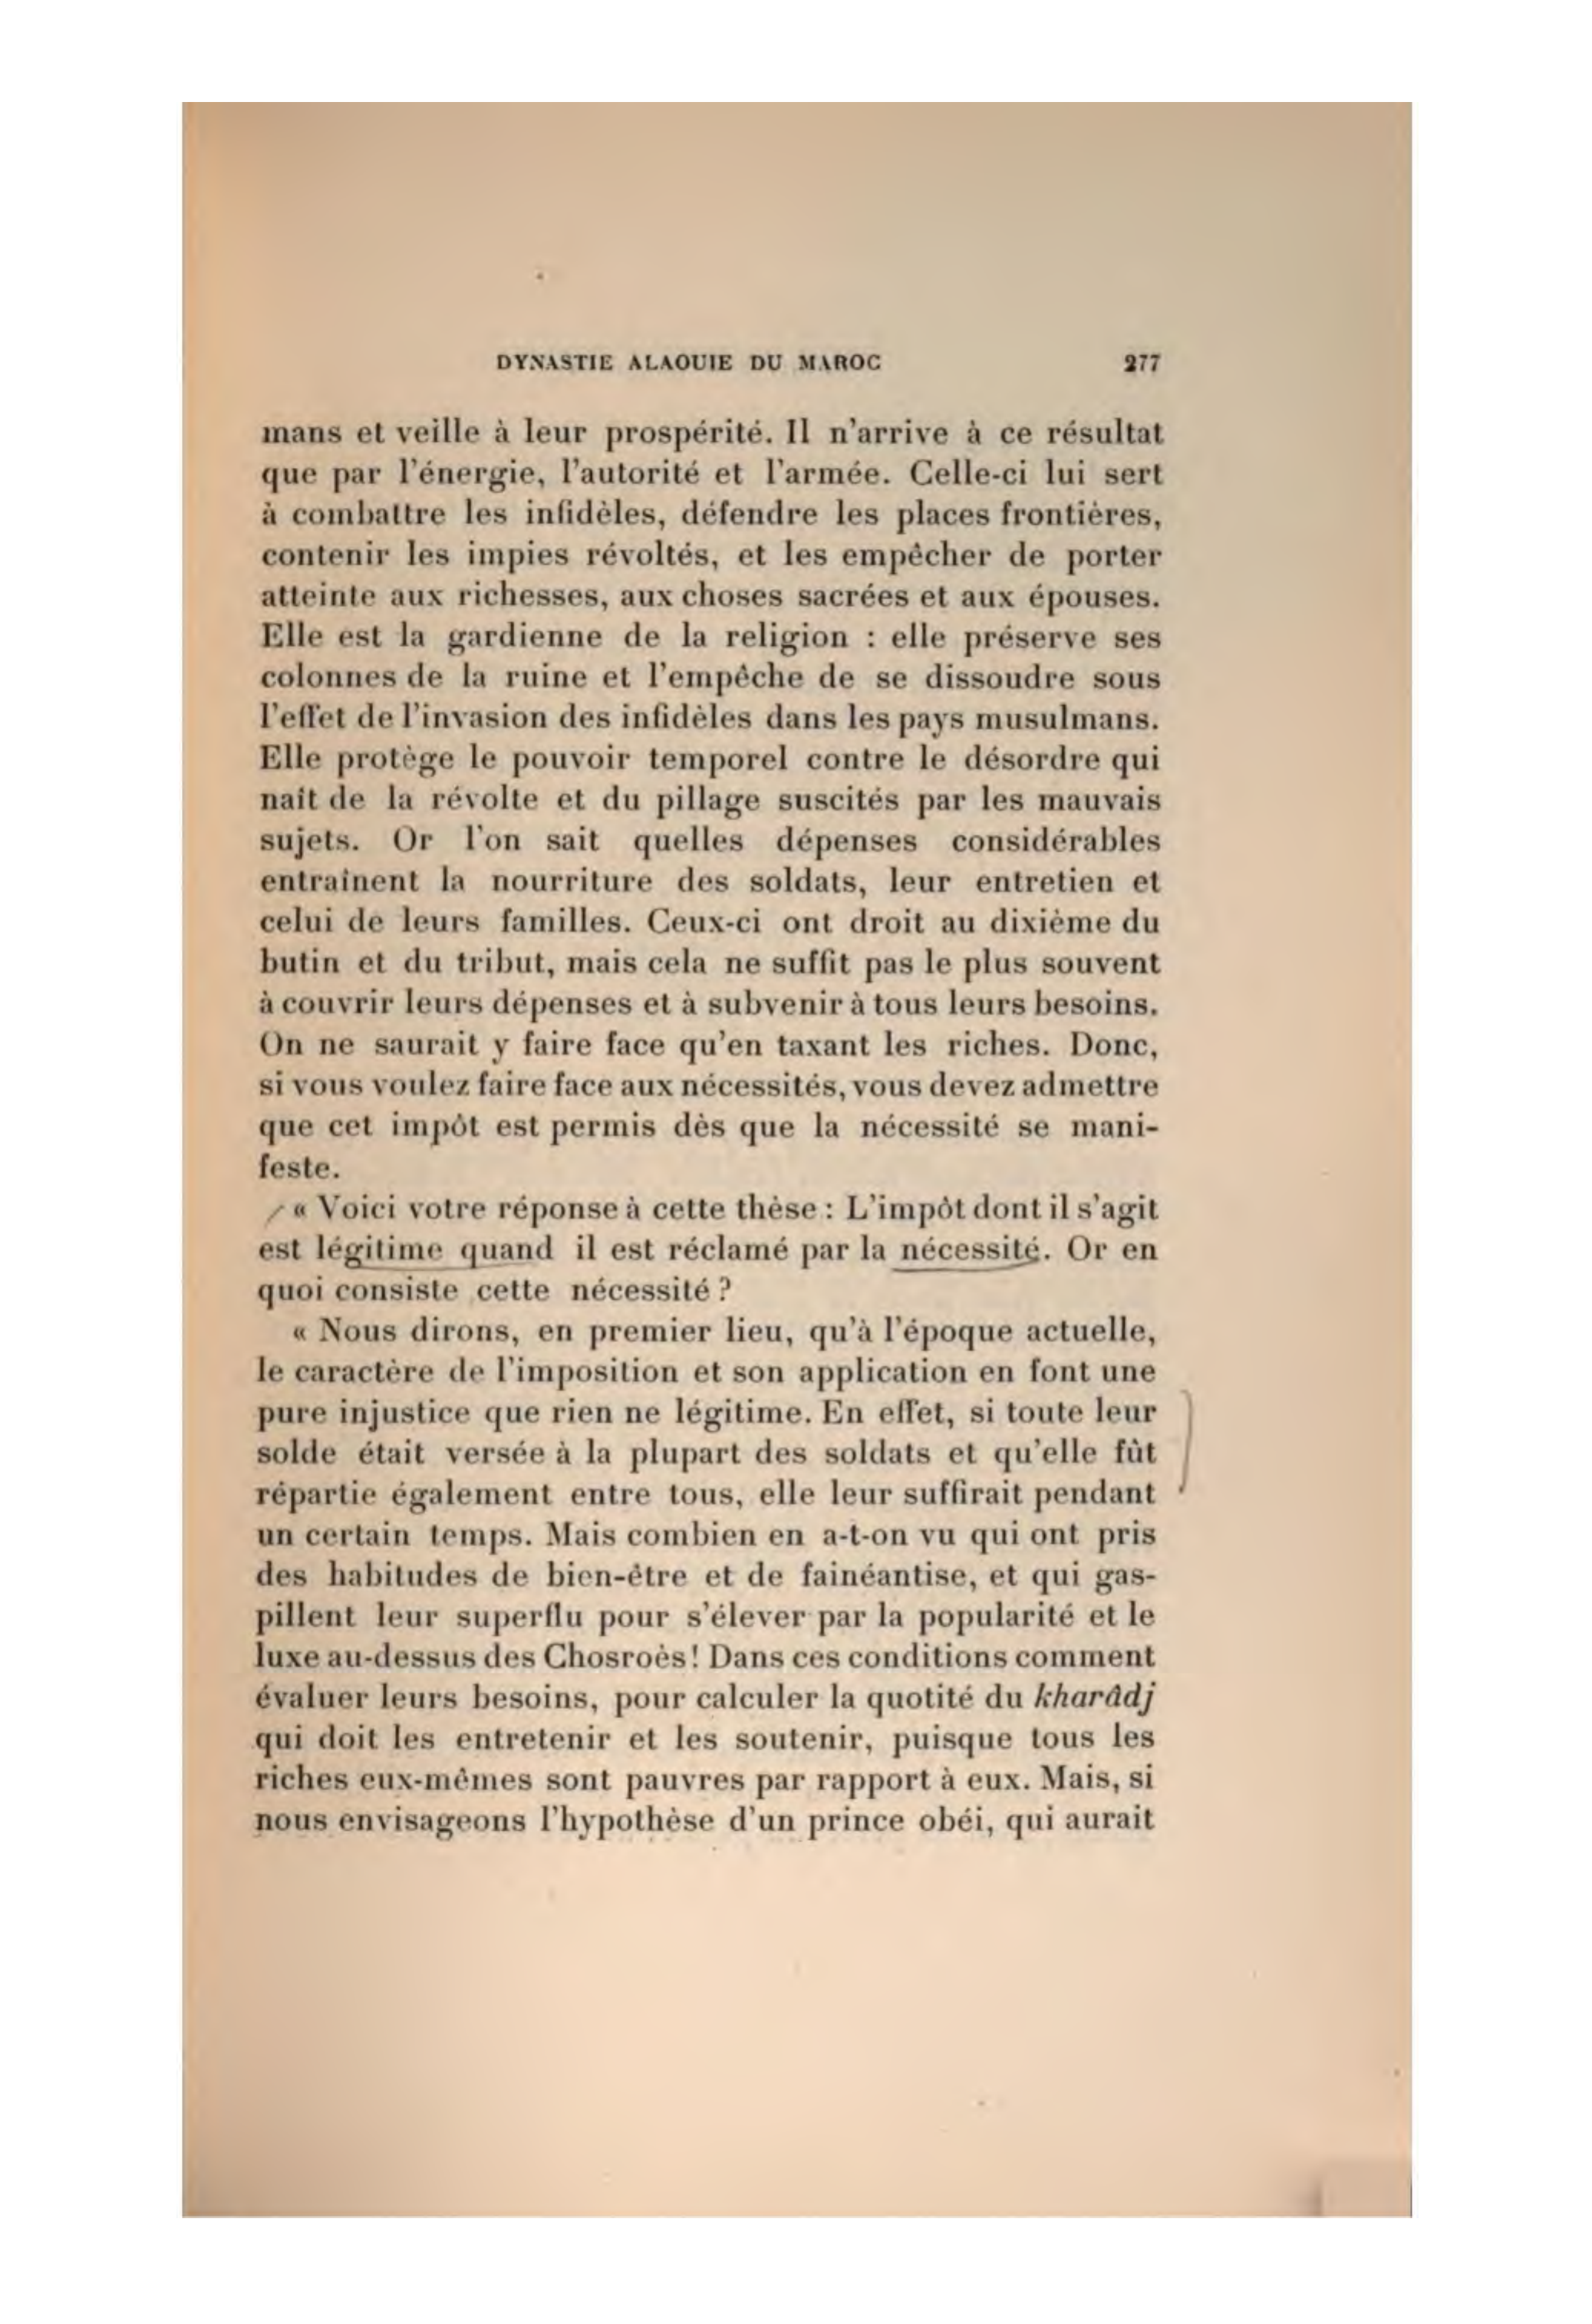 DYNASTIE ALAOUIE DU MAROC 277
mans et veille à leur prospérité. Il n'arrive à ce résultat
que par l'énergie, l'autorité et l'armée. Celle-ci lui sert
à combattre les infidèles, défendre les places frontières,
contenir les impies révoltés, et les empêcher de porter
atteinte aux richesses, aux choses sacrées et aux épouses.
Elle est la gardienne de la religion : elle préserve ses
colonnes de la ruine et l'empêche de se dissoudre sous
l'effet de l'invasion des infidèles dans les pays musulmans.
Elle protège le pouvoir temporel contre le désordre qui
naît de la révolte et du pillage suscités par les mauvais
sujets. Or l'on sait quelles dépenses considérables
entraînent la nourriture des soldats, leur entretien et
celui de leurs familles. Ceux-ci ont droit au dixième du
butin et du tribut, mais cela ne suffit pas le plus souvent
à couvrir leurs dépenses et à subvenir à tous leurs besoins.
On ne saurait y faire face qu'en taxant les riches. Donc,
si vous voulez faire face aux nécessités, vous devez admettre
que cet impôt est permis dès que la nécessité se mani-
feste.
« Voici votre réponse à cette thèse : L'impôt dont il s'agit
est légitime quand il est réclamé par la nécessité. Or en
quoi consiste cette nécessité ?
« Nous dirons, en premier lieu, qu'à l'époque actuelle,
le caractère de l'imposition et son application en font une
pure injustice que rien ne légitime. En effet, si toute leur
solde était versée à la plupart des soldats et qu'elle fût
répartie également entre tous, elle leur suffirait pendant
un certain temps. Mais combien en a-t-on vu qui ont pris
des habitudes de bien-être et de fainéantise, et qui gas-
pillent leur superflu pour s'élever par la popularité et le
luxe au-dessus des Chosroès! Dans ces conditions comment
évaluer leurs besoins, pour calculer la quotité du kharâdj
qui doit les entretenir et les soutenir, puisque tous les
riches eux-mêmes sont pauvres par rapport à eux. Mais, si
nous envisageons l'hypothèse d'un prince obéi, qui aurait